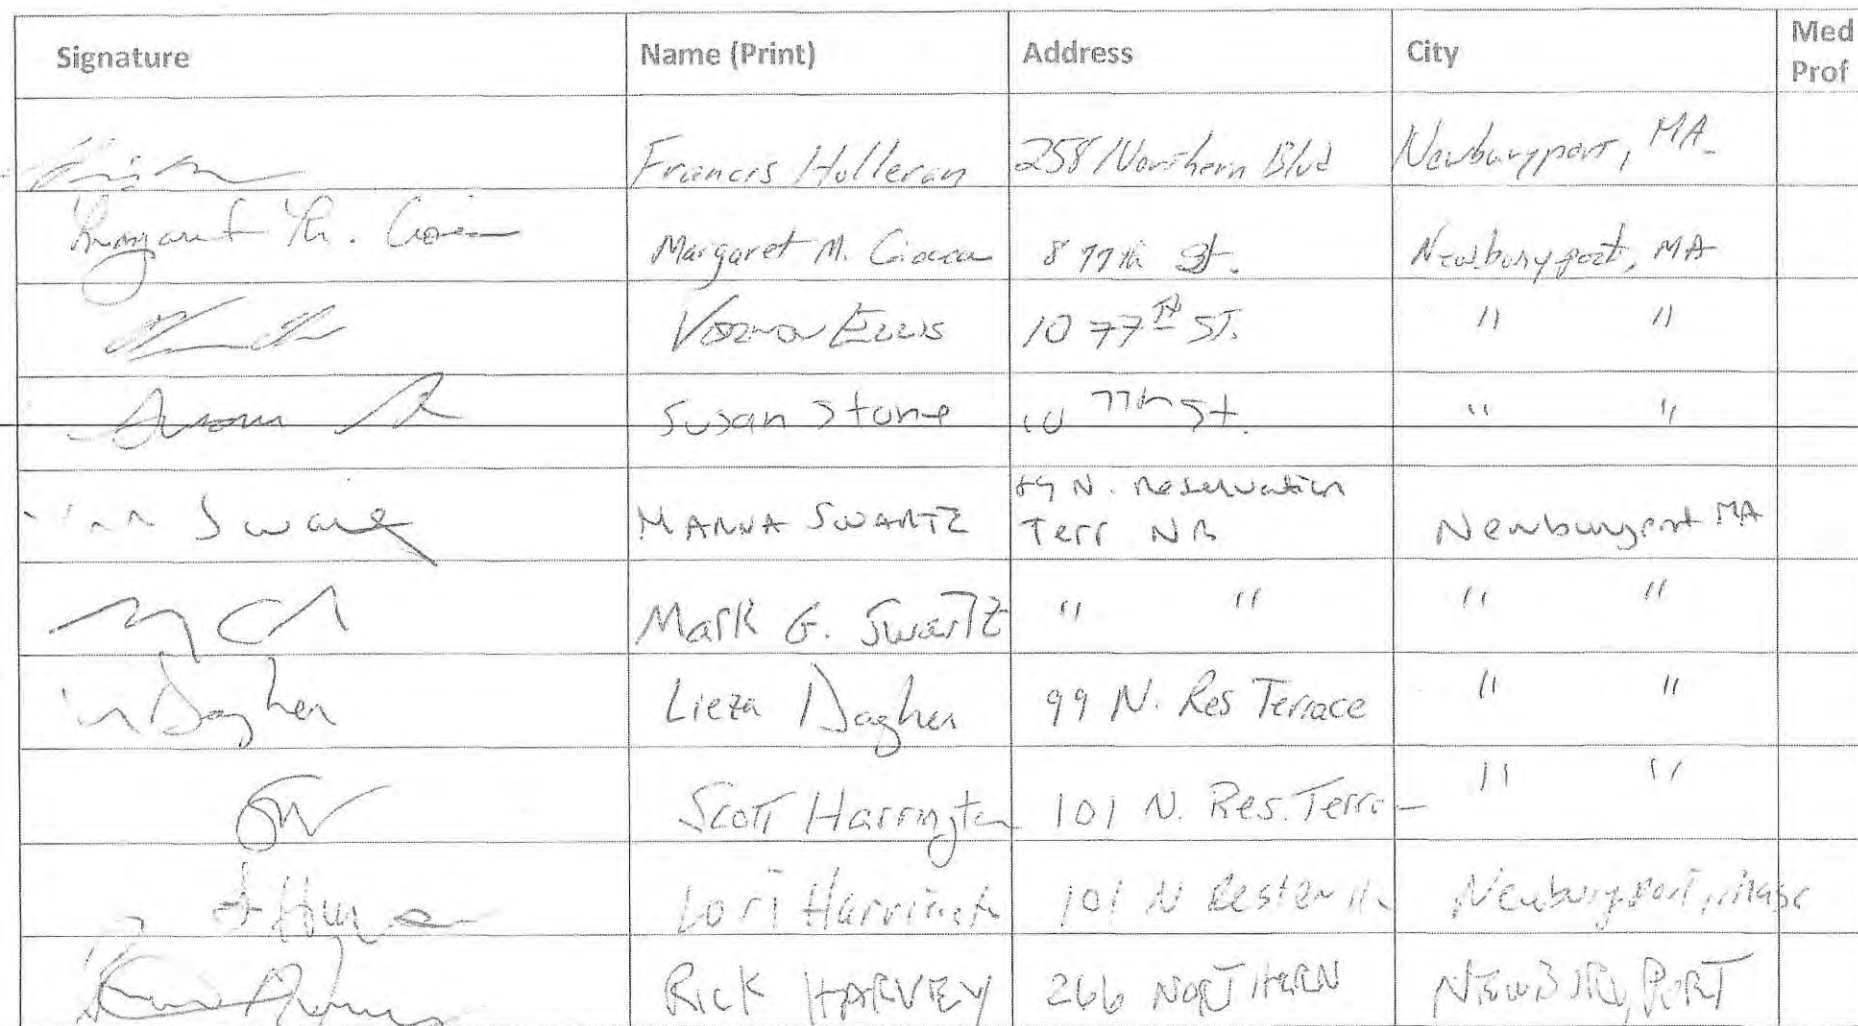 Signature Name (Print) Address City Med Prof
Francis Holleran 258 Northern Blvd Newburyport, MA
Margaret M. Margaret M. Ciocca 8 77th St. Newburyport, MA
Vernon Ellis 10 77th St. " "
Susan Stone 10 77th St. " "
Swartz MARNA SWARTZ 89 N. Reservation Terr NB Newburyport MA
Mark G. Swartz " " " "
Dagher Lieza Dagher 99 N. Res Terrace " "
Scott Harrington 101 N. Res. Terra " "
Lori 101 N Newburyport, Mass
RICK HARVEY 266 NORTHERN NEWBURYPORT